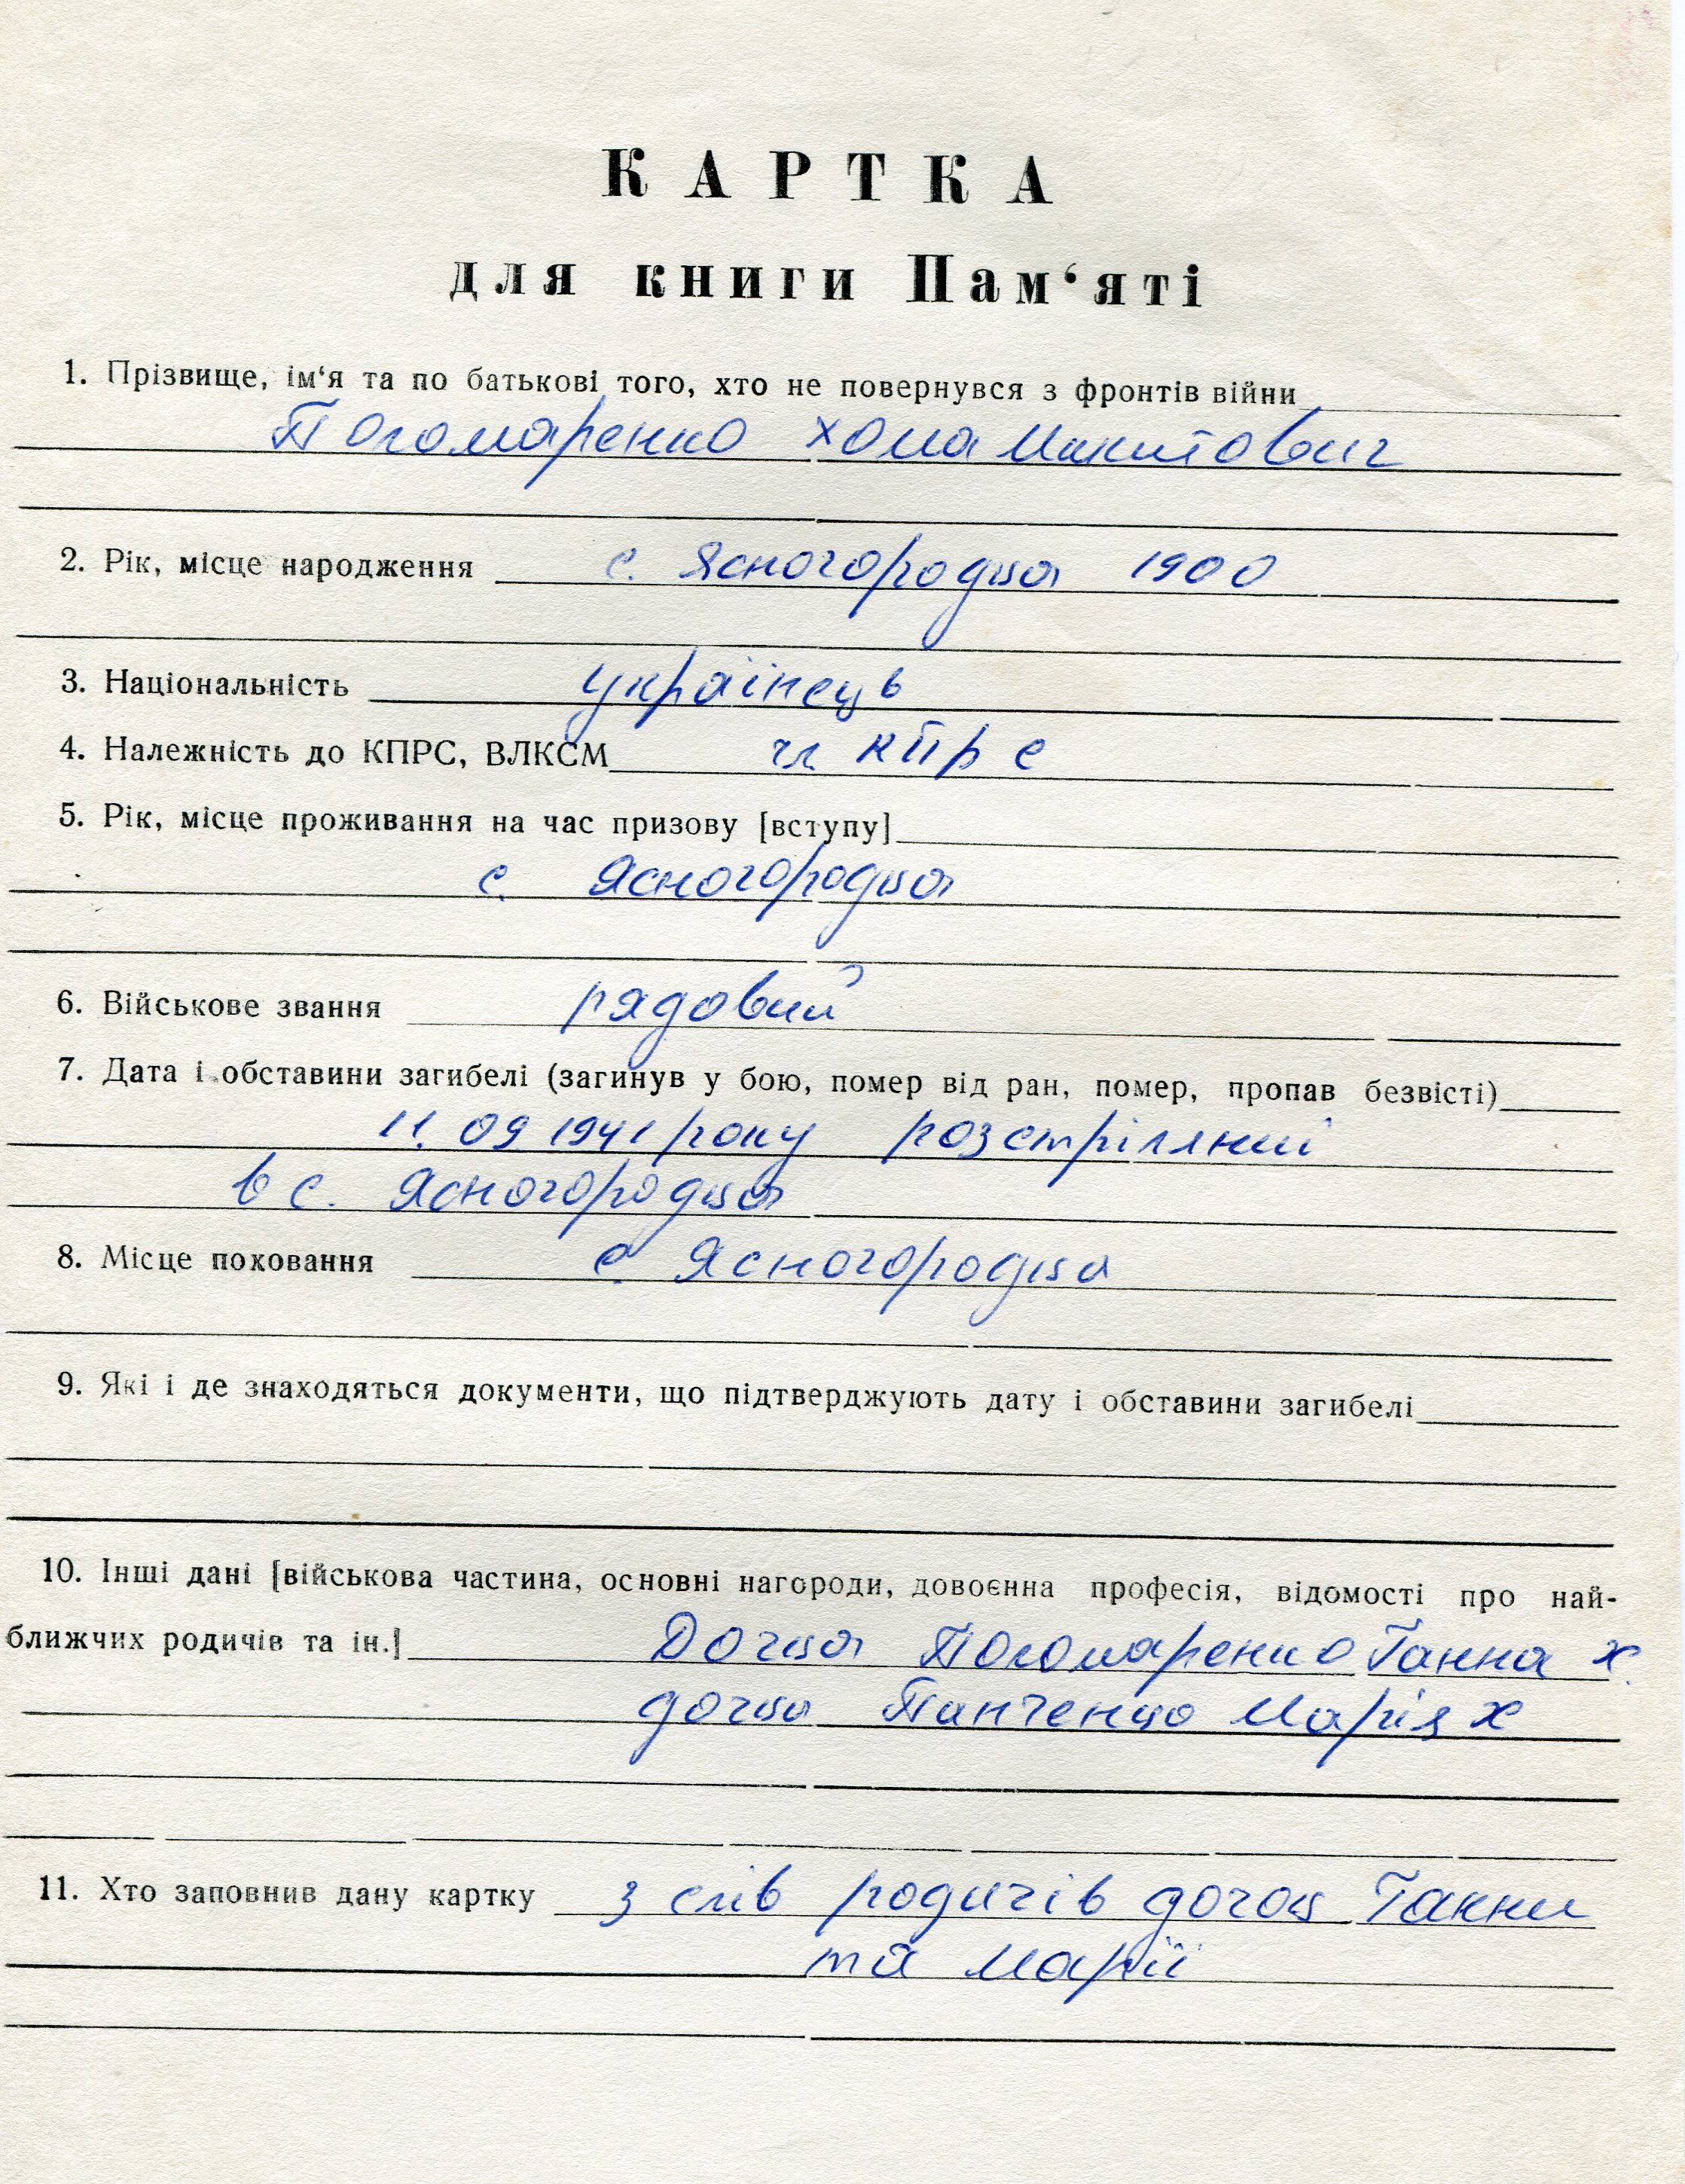 КАРТКА
для книги Пам‘яті
1. Прізвище, ім‘я та по батькові того, хто не повернувся з фронтів війни
Погомаренко Хома Микитович
2. Рік, місце народження с. Ясногородца 1900
3. Національність українець
4. Належність до КПРС, ВЛКСМ чл КПРС
5. Рік, місце проживання на час призову [вступу]
с. Ясногородца
6. Військове звання рядовий
7. Дата і обставини загибелі (загинув у бою, помер від ран, помер, пропав безвісті)
11.09 1941 року розстріляний
в с. Ясногородца
8. Місце поховання с. Ясногородца
9. Які і де знаходяться документи, що підтверджують дату і обставини загибелі
10. Інші дані [військова частина, основні нагороди, довоєнна професія, відомості про най-
ближчих родичів та ін.] Дочца Погомаренко Ганна Х.
дочца Панченко Марія Х
11. Хто заповнив дану картку з слів родичів дочок Ганни
та Марії